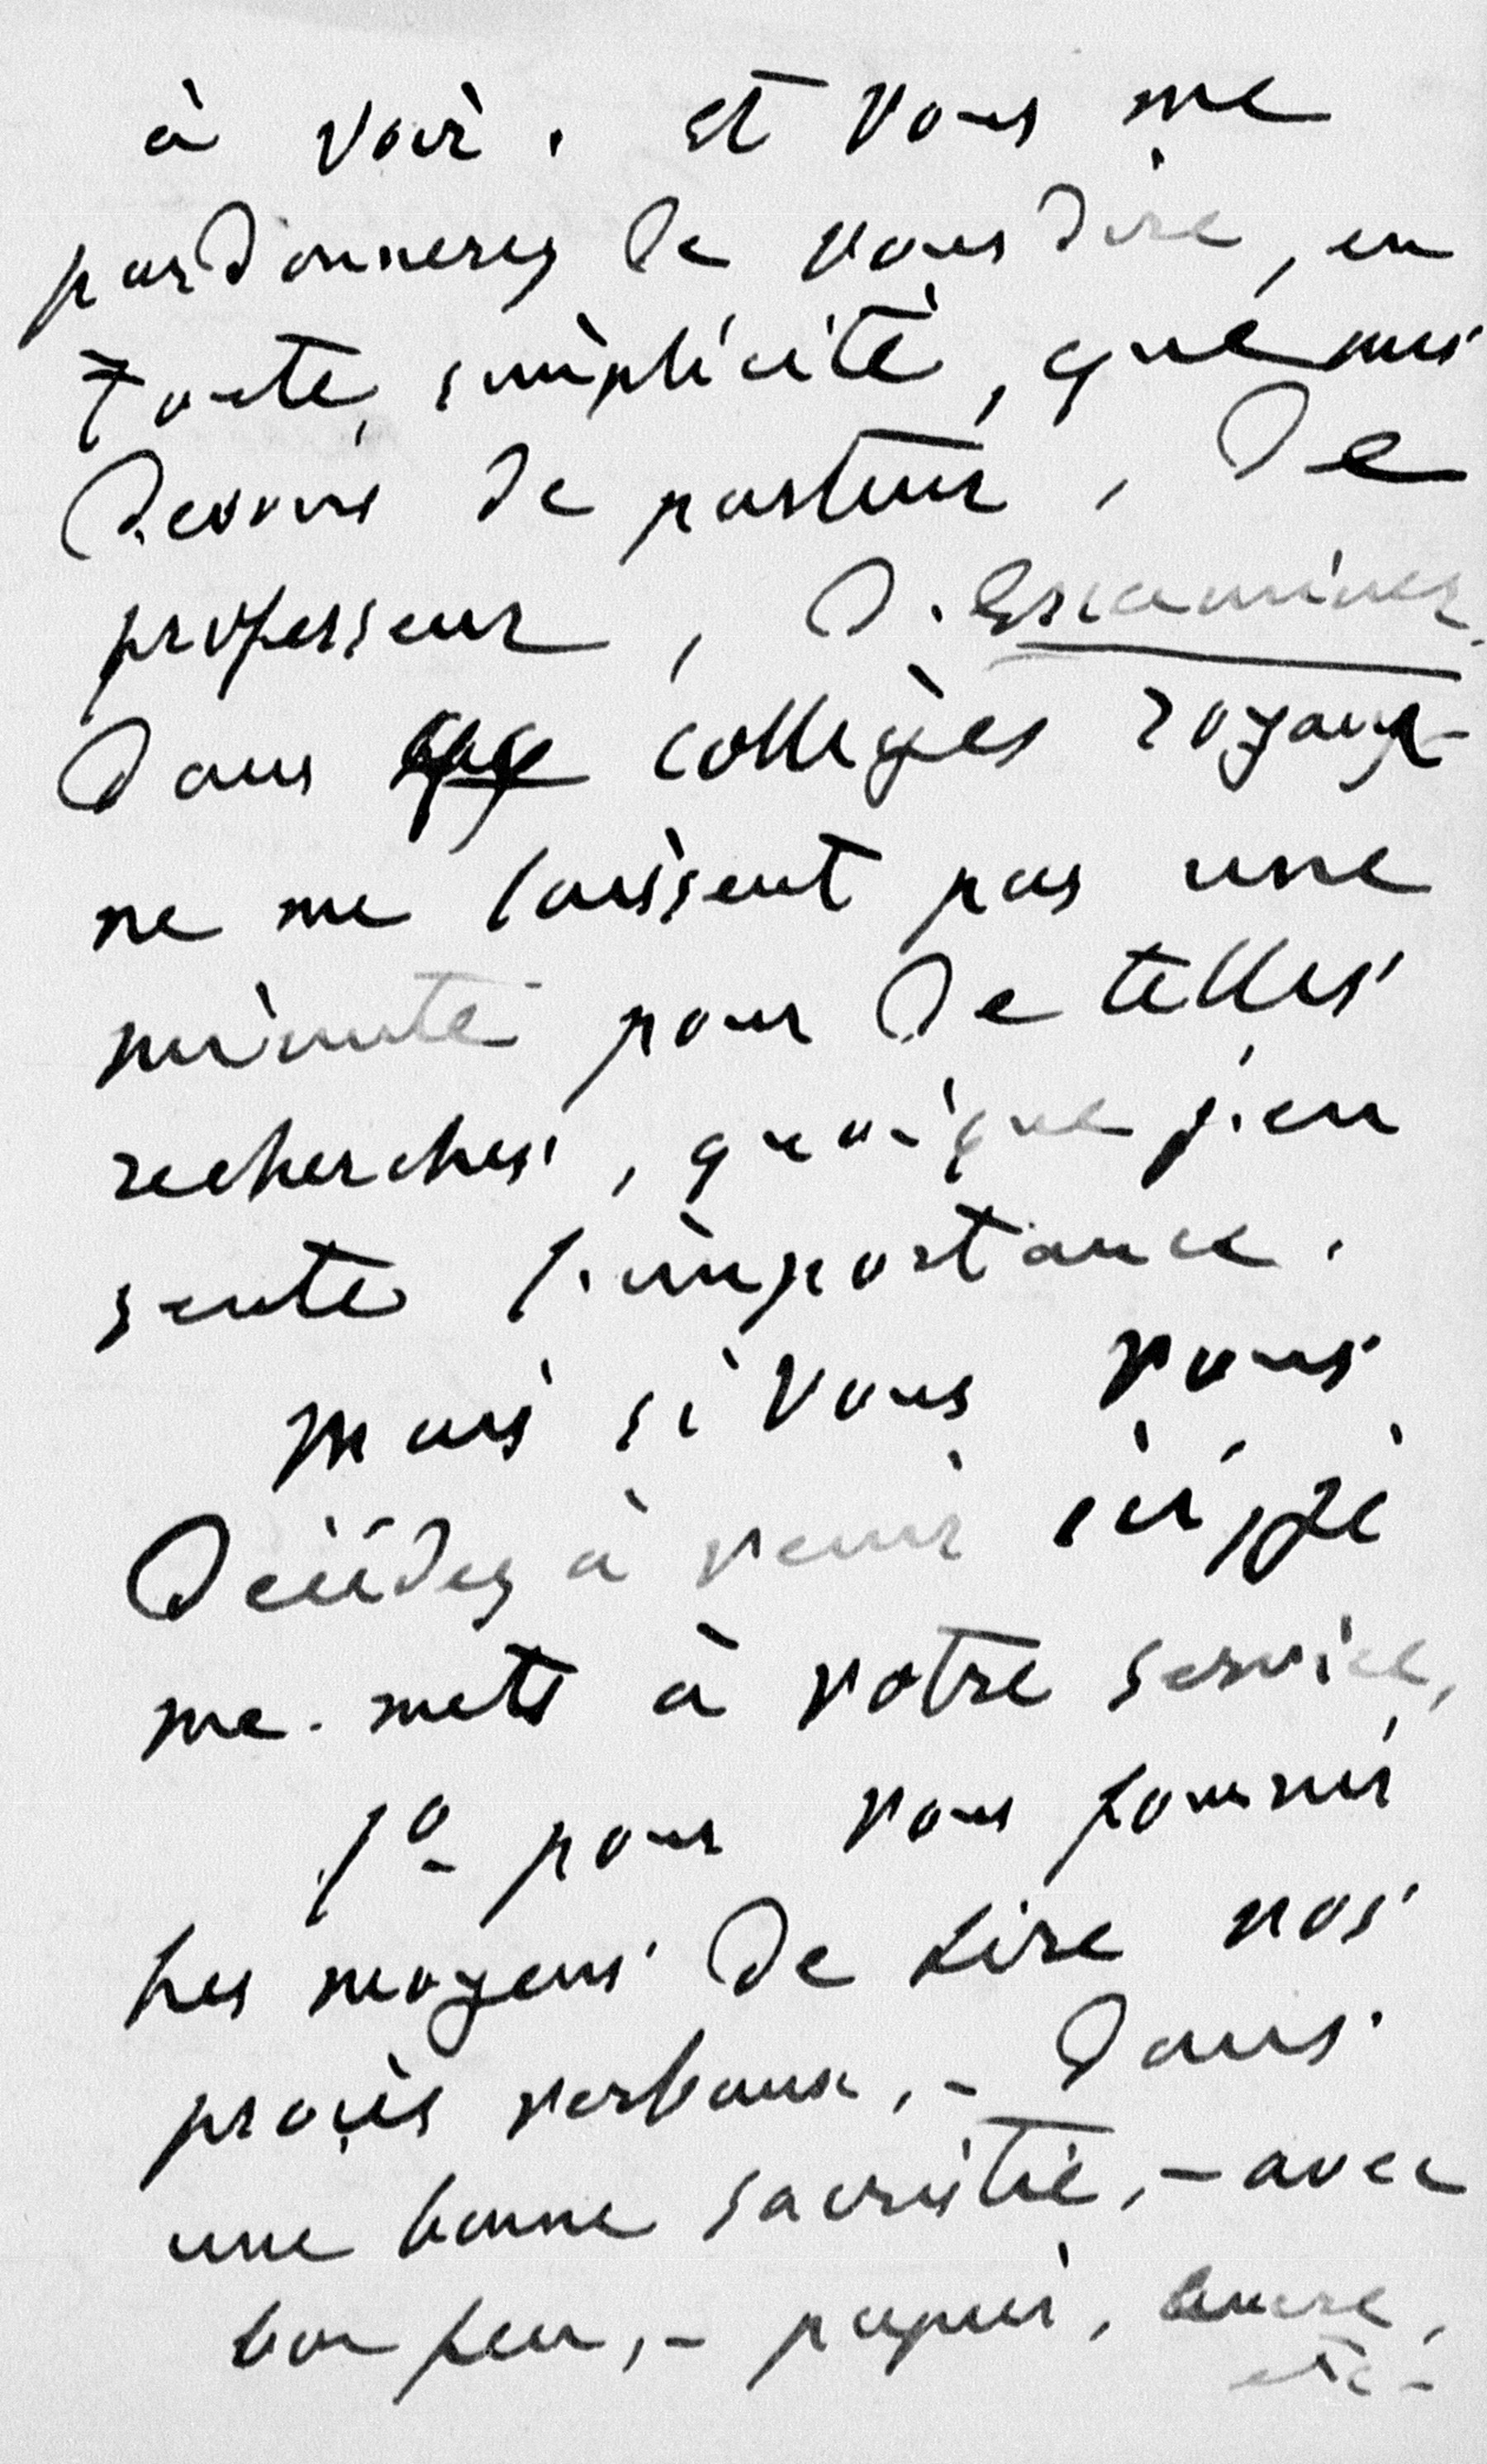 à voir. Et vous me
pardonnerez de vous dire, en
toute simplicité, que mes
devoirs de pasteur, de
professeur, d'Examiner
dans collèges royaux
ne me laissent pas une
minute pour de telles
recherches, quoique j'en
sente l'importance.
Mais si vous vous
décidez à venir ici, je
me mets à votre service,
1° pour vous fournir
les moyens de lire nos
procès verbaux, - dans
une bonne sacristie, - avec
bon feu, - papier, encre,
etc -